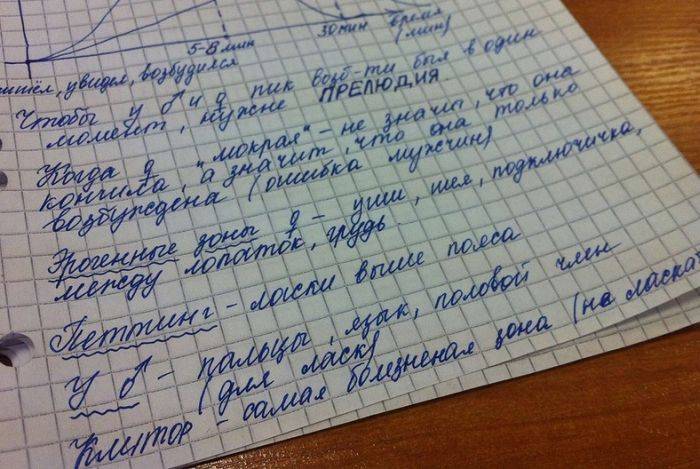 время
5-8 мин
30 мин
(мин)
увидел, возбудился
Чтобы у ♂ и ♀ пик возб-ти был в один
момент, нужне ПРЕЛЮДИЯ
Когда ♀ "мокрая" - не значит, что она
кончила, а значит, что она только
возбуждена (ошибка мужчин)
Эрогенные зоны ♀ - уши, шея, подключичка,
между лопаток, грудь
Петтинг - ласки выше пояса
У ♂ - пальцы, язык, половой член
(для ласк)
Клитор - самая болезненая зона (не ласкат